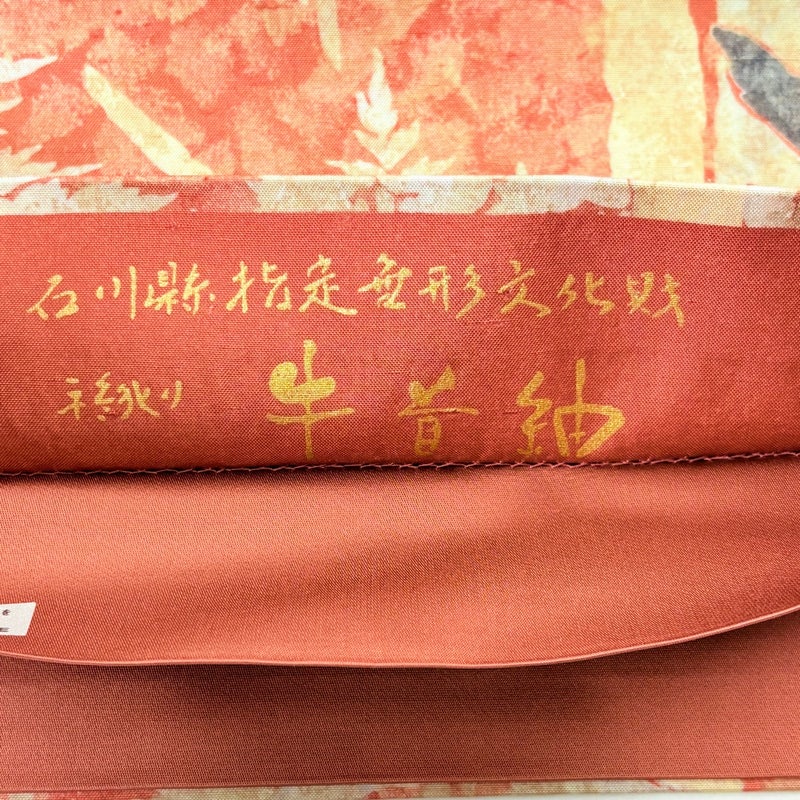 石川縣指定無形文化財
牛首紬